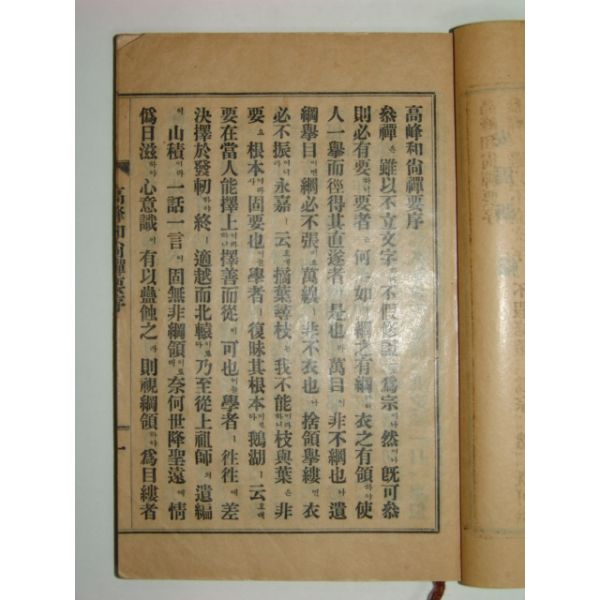 高峰和尙禪要序
叅禪은雖以不立文字하며不假修證으로爲宗이나然이나旣可叅
則必有要하니要者는何오如網之有綱하며衣之有領하야使
人一擧而徑得其直遂者ㅣ是也라萬目이非不網也나遺
綱擧目이면網必不張이오萬縷ㅣ非不衣也나捨領擧縷면衣
必不振이니永嘉ㅣ云호대摘葉尋枝는我不能이라하니枝與葉은非
要오根本이사固要也어늘學者ㅣ復昧其根本하며鵝湖ㅣ云호대
要在當人能擇上이라하니擇善而從이可也어늘學者ㅣ徃徃에差
決擇於發軔하야終適越而北轅하나니乃至從上祖師의遺編
이山積이라一話一言이固無非綱領이로대奈何世降聖遠에情
僞日滋하야心意識이有以蠱蝕之라則視綱領하야爲目縷者
高峰和尙禪要序
一